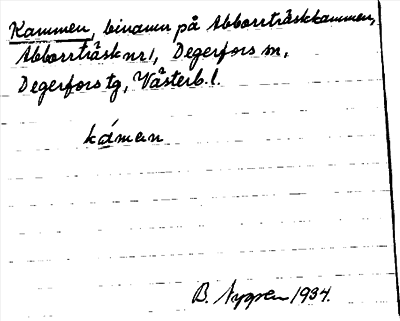 Kammen, binamn på Abborrträskkammen,
Abborrträsk nr 1, Degerfors sn,
Degerfors tg, Västerb. l.
kámən
B. 1934.